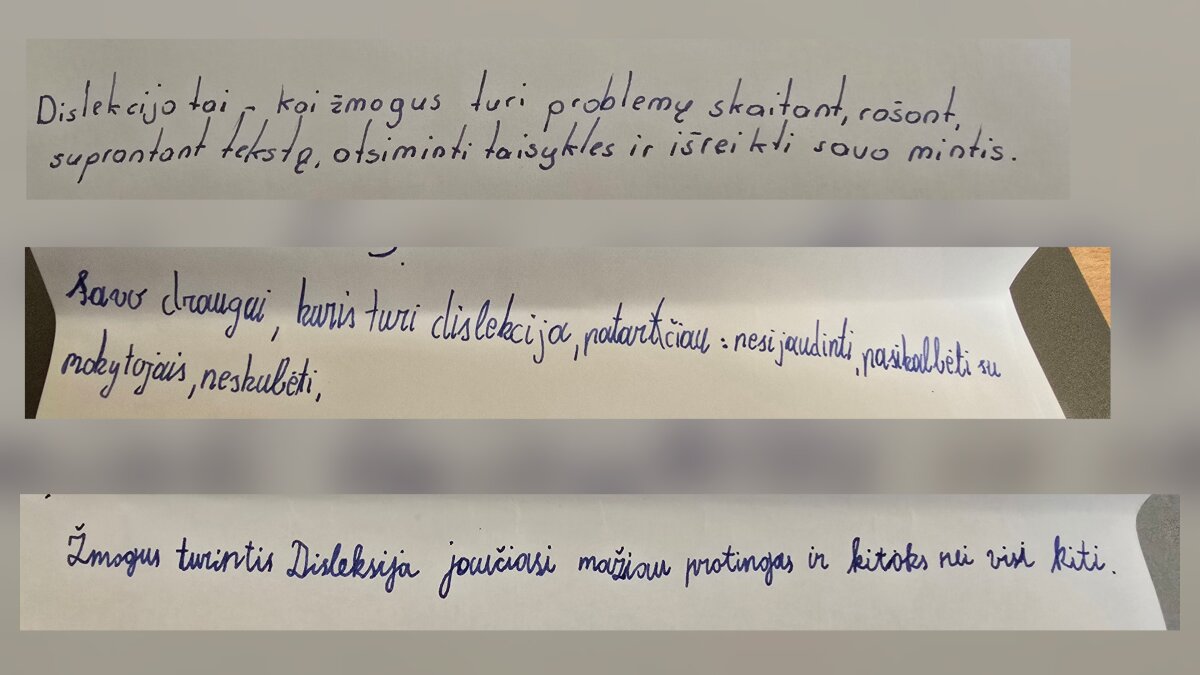 Dislekcija tai - kai žmogus turi problemų skaitant, rašant,
suprantant tekstą, atsiminti taisykles ir išreikšti savo mintis.
Savo draugai, kuris turi dislekcija, patartčiau: nesijaudinti, pasikalbėti su
mokytojais, neskubėti,
Žmogus turintis Disleksija jaučiasi mažiau protingas ir kitoks nei visi kiti.